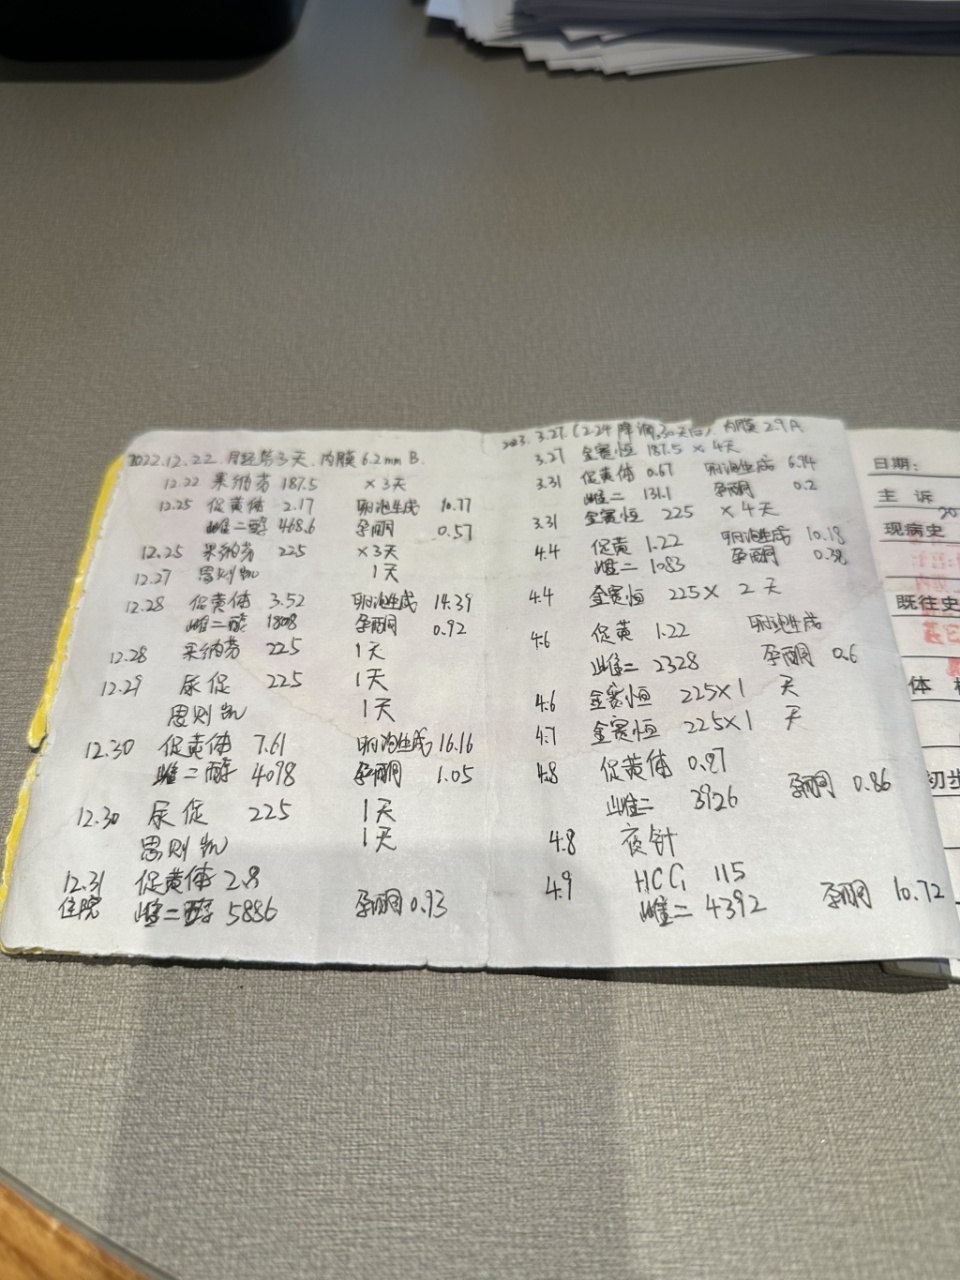 2022.12.22. 月经第3天. 内膜6.2mm B.
12.22 果纳芬 187.5 ×3天
12.25 促黄体 2.17 卵泡生成 10.77
雌二醇 468.6 孕酮 0.57
12.25 果纳芬 225 ×3天
12.27 思则凯 1天
12.28 促黄体 3.52 卵泡生成 14.39
雌二醇 1808 孕酮 0.92
12.28 果纳芬 225 1天
12.29 尿促 225 1天
思则凯 1天
12.30 促黄体 7.61 卵泡生成 16.16
雌二醇 4078 孕酮 1.05
12.30 尿促 225 1天
思则凯 1天
12.31 促黄体 2.8
住院 雌二醇 5886 孕酮 0.93
3.27. (2.24降调,30天后). 内膜2.9A
3.27 金赛恒 187.5 × 4天
3.31 促黄体 0.67 卵泡生成 6.94
雌二 131.1 孕酮 0.2
3.31 金赛恒 225 × 4天
4.4 促黄 1.22 卵泡生成 10.18
雌二 1083 孕酮 0.38
4.4 金赛恒 225× 2 天
4.6 促黄 1.22 卵泡生
雌二 2328 孕酮 0.6
4.6 金赛恒 225×1 天
4.7 金赛恒 225×1 天
4.8 促黄体 0.97
雌二 3926 孕酮 0.86
4.8 夜针
4.9 HCG 115
雌二 4392 孕酮 10.72
日期:
主 诉
现病史
既往史
体
初步